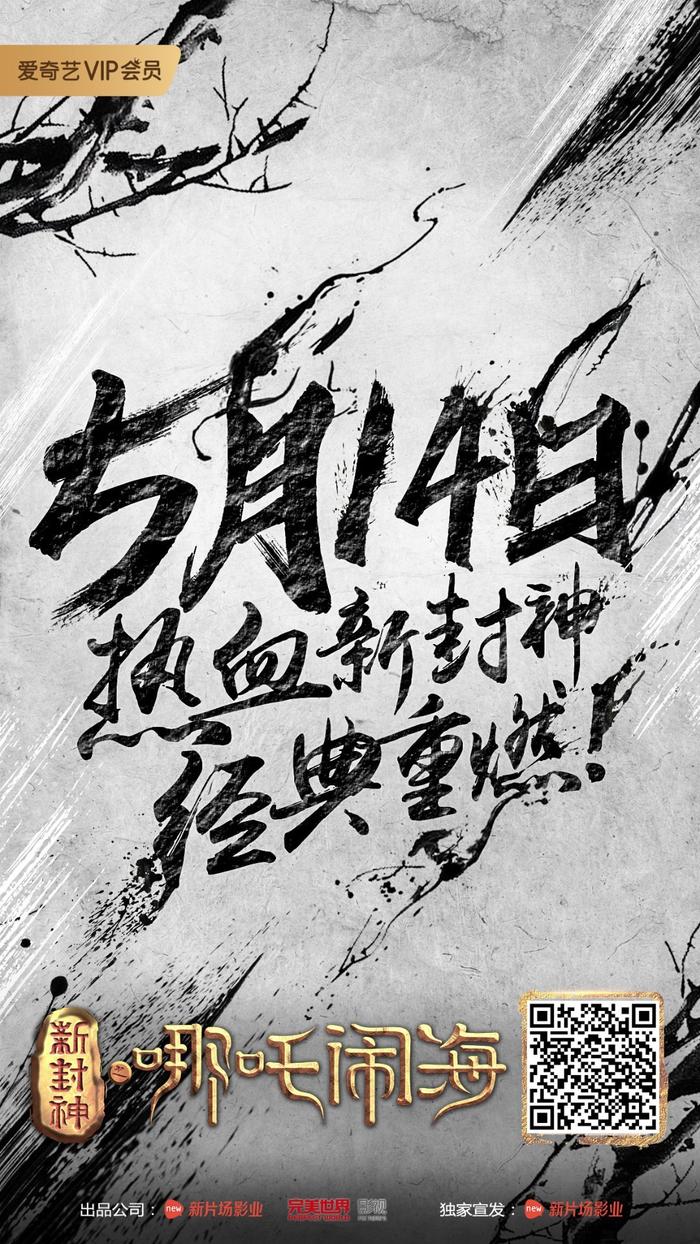 爱奇艺VIP会员
5月14日
热血新封神
经典重燃！
新封神之哪吒闹海
出品公司：new 新片场影业 完美世界影视 独家宣发：new 新片场影业